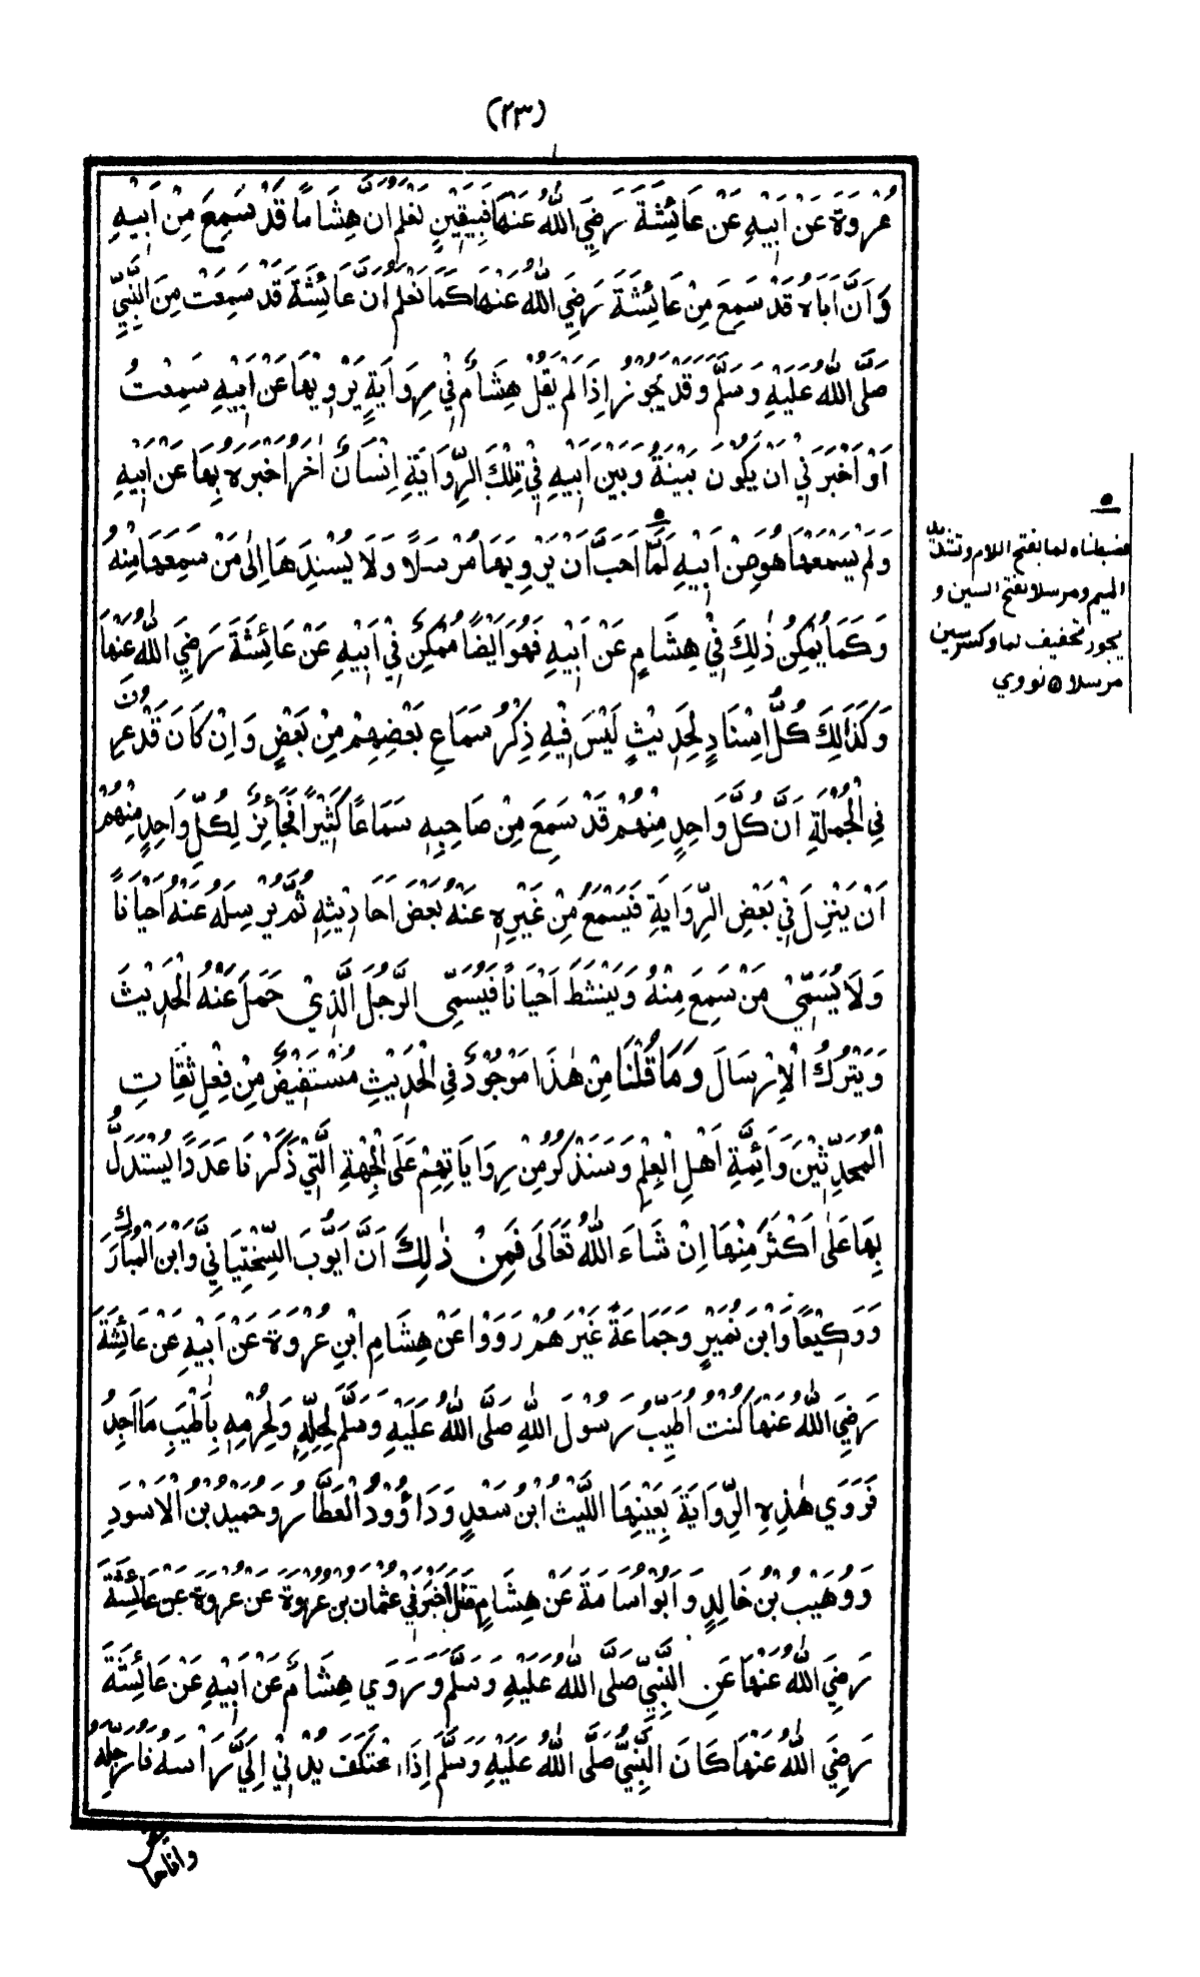 (٢٣)
عُرْوَةَ عَنْ اَبِيْهِ عَنْ عَائِشَةَ رَضِيَ اللّٰهُ عَنْهَا فَبِيَقِيْنٍ نَعْلَمُ اَنَّ هِشَامًا قَدْ سَمِعَ مِنْ اَبِيْهِ
وَاَنَّ اَبَاهُ قَدْ سَمِعَ مِنْ عَائِشَةَ رَضِيَ اللّٰهُ عَنْهَا كَمَا نَعْلَمُ اَنَّ عَائِشَةَ قَدْ سَمِعَتْ مِنَ النَّبِيِّ
صَلَّى اللّٰهُ عَلَيْهِ وَسَلَّمَ وَقَدْ يَجُوْزُ اِذَا لَمْ يَقُلْ هِشَامٌ فِيْ رِوَايَةٍ يَرْوِيْهَا عَنْ اَبِيْهِ سَمِعْتُ
اَوْ اَخْبَرَنِيْ اَنْ يَكُوْنَ بَيْنَهُ وَبَيْنَ اَبِيْهِ فِيْ تِلْكَ الرِّوَايَةِ اِنْسَانٌ اٰخَرُ اَخْبَرَهُ بِهَا عَنْ اَبِيْهِ
وَلَمْ يَسْمَعْهَا هُوَ مِنْ اَبِيْهِ لَمَّا اَحَبَّ اَنْ يَرْوِيَهَا مُرْسَلًا وَلَا يُسْنِدَهَا اِلٰى مَنْ سَمِعَهَا مِنْهُ
وَكَمَا يُمْكِنُ ذٰلِكَ فِيْ هِشَامٍ عَنْ اَبِيْهِ فَهُوَ اَيْضًا مُمْكِنٌ فِيْ اَبِيْهِ عَنْ عَائِشَةَ رَضِيَ اللّٰهُ عَنْهَا
وَكَذٰلِكَ كُلُّ اِسْنَادٍ لِحَدِيْثٍ لَيْسَ فِيْهِ ذِكْرُ سَمَاعِ بَعْضِهِمْ مِنْ بَعْضٍ وَاِنْ كَانَ قَدْ عُرِفَ
فِي الْجُمْلَةِ اَنَّ كُلَّ وَاحِدٍ مِنْهُمْ قَدْ سَمِعَ مِنْ صَاحِبِهٖ سَمَاعًا كَثِيْرًا فَجَائِزٌ لِكُلِّ وَاحِدٍ مِنْهُمْ
اَنْ يَنْزِلَ فِيْ بَعْضِ الرِّوَايَةِ فَيَسْمَعَ مِنْ غَيْرِهٖ عَنْهُ بَعْضَ اَحَادِيْثِهٖ ثُمَّ يُرْسِلَهُ عَنْهُ اَحْيَانًا
وَلَا يُسَمِّيْ مَنْ سَمِعَ مِنْهُ وَيَنْشَطَ اَحْيَانًا فَيُسَمِّيَ الرَّجُلَ الَّذِيْ حَمَلَ عَنْهُ الْحَدِيْثَ
وَيَتْرُكُ الْاِرْسَالَ وَمَا قُلْنَا مِنْ هٰذَا مَوْجُوْدٌ فِي الْحَدِيْثِ مُسْتَفِيْضٌ مِنْ فِعْلِ ثِقَاتِ
الْمُحَدِّثِيْنَ وَاَئِمَّةِ اَهْلِ الْعِلْمِ وَسَنَذْكُرُ مِنْ رِوَايَاتِهِمْ عَلَى الْجِهَةِ الَّتِيْ ذَكَرْنَا عَدَدًا يُسْتَدَلُّ
بِهَا عَلٰى اَكْثَرَ مِنْهَا اِنْ شَاءَ اللّٰهُ تَعَالٰى فَمِنْ ذٰلِكَ اَنَّ اَيُّوْبَ السِّخْتِيَانِيَّ وَابْنَ الْمُبَارَكِ
وَوَكِيْعًا وَابْنَ نُمَيْرٍ وَجَمَاعَةً غَيْرَهُمْ رَوَوْا عَنْ هِشَامِ ابْنِ عُرْوَةَ عَنْ اَبِيْهِ عَنْ عَائِشَةَ
رَضِيَ اللّٰهُ عَنْهَا كُنْتُ اُطَيِّبُ رَسُوْلَ اللّٰهِ صَلَّى اللّٰهُ عَلَيْهِ وَسَلَّمَ لِحِلِّهٖ وَلِحُرْمِهٖ بِاَطْيَبِ مَا اَجِدُ
فَرَوَي هٰذِهِ الرِّوَايَةَ بِعَيْنِهَا اللَّيْثُ ابْنُ سَعْدٍ وَدَاؤُوْدُ الْعَطَّارُ وَحُمَيْدُ بْنُ الْاَسْوَدِ
وَوُهَيْبُ بْنُ خَالِدٍ وَاَبُوْ اُسَامَةَ عَنْ هِشَامٍ قَالَ اَخْبَرَنِيْ عُثْمَانُ بْنُ عُرْوَةَ عَنْ عُرْوَةَ عَنْ عَائِشَةَ
رَضِيَ اللّٰهُ عَنْهَا عَنِ النَّبِيِّ صَلَّى اللّٰهُ عَلَيْهِ وَسَلَّمَ وَرَوَي هِشَامٌ عَنْ اَبِيْهِ عَنْ عَائِشَةَ
رَضِيَ اللّٰهُ عَنْهَا كَانَ النَّبِيُّ صَلَّى اللّٰهُ عَلَيْهِ وَسَلَّمَ اِذَا اعْتَكَفَ يُدْنِيْ اِلَيَّ رَاْسَهُ فَاُرَجِّلُهُ
ضبطناه لما بفتح اللام وتشديد
الميم ومرسلا بفتح السين و
يجوز تخفيف لما وكسر سين
مرسلا ۵ نووي